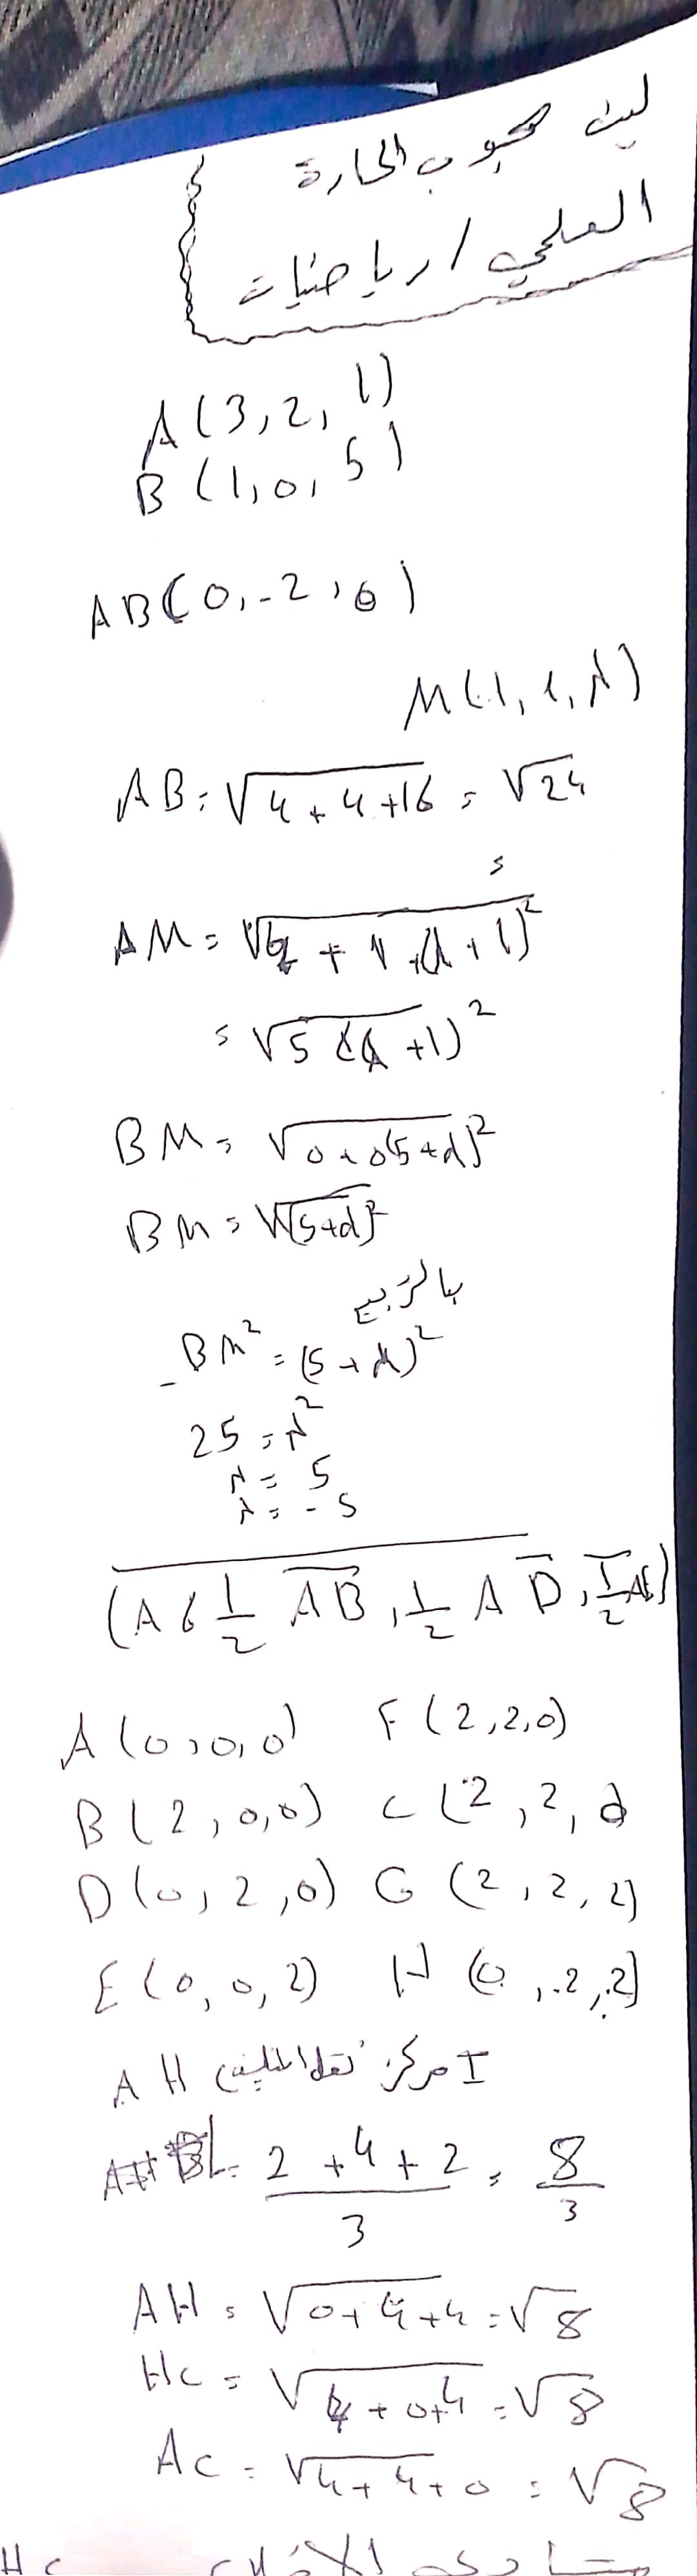 ليث محبوب الحارة
العلمي / رياضيات
A(3,2,1)
B(1,0,5)
AB(0,-2,6)
M(1,1,λ)
AB = √4+4+16 = √24
=
AM = √4 + 1 + (λ+1)²
= √5 (λ+1)²
BM = √0+0(5+λ)²
BM = √(5+λ)²
بالتربيع
BM² = (5+λ)²
25 = λ²
λ = 5
λ = -5
(A, 1/2 AB, 1/2 AD, 1/2 AE)
A(0,0,0) F(2,2,0)
B(2,0,0) C(2,2,0
D(0,2,0) G(2,2,2)
E(0,0,2) H(0,2,2)
I مركز ثقل المثلث AH
2+4+2/3 = 8/3
AH = √0+4+4 = √8
HC = √4+0+4 = √8
AC = √4+4+0 = √8